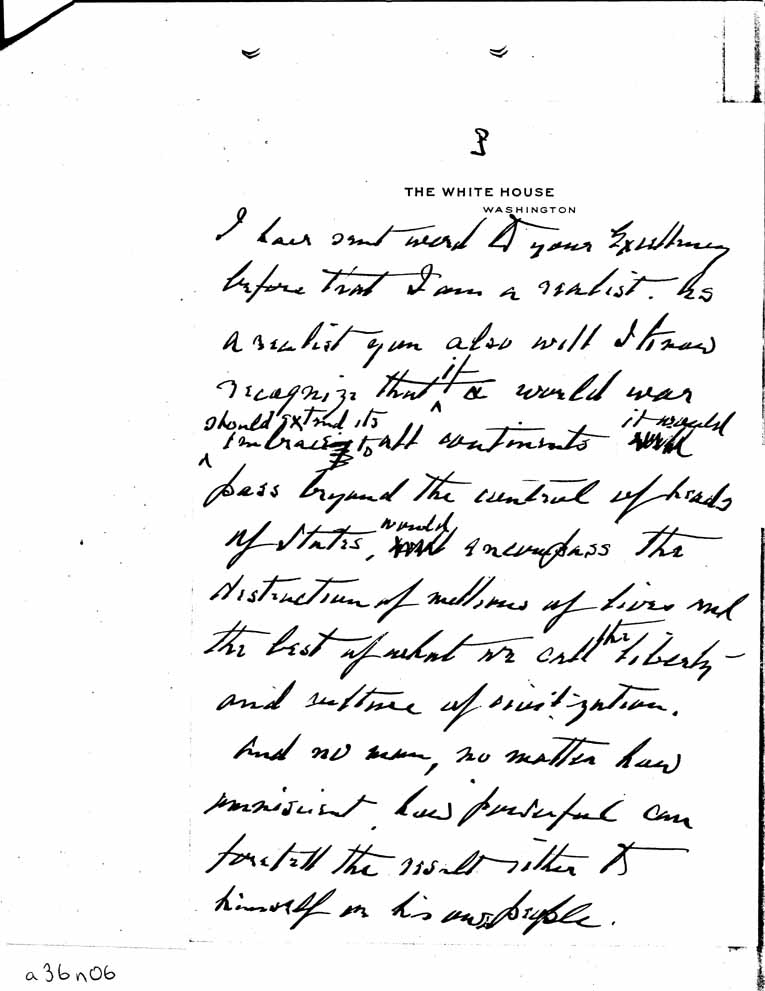 3
THE WHITE HOUSE
WASHINGTON
I have sent word to your Excellency
before that I am a realist. As
a realist you also will I know
recognize that if a world war
should extend its
embrace to all continents it would
pass beyond the control of heads
of States, would encompass the
destruction of millions of lives and
the best of what we call the liberty
and culture of civilization.
And no man, no matter how
omniscient, how powerful can
foretell the result either to
himself or his own people.
a36n06